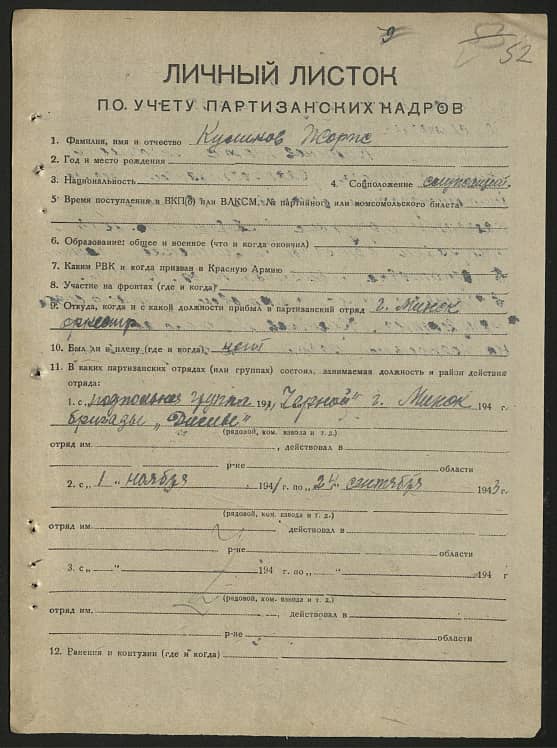 52
ЛИЧНЫЙ ЛИСТОК
ПО УЧЕТУ ПАРТИЗАНСКИХ КАДРОВ
1. Фамилия, имя и отчество Жорж
2. Год и место рождения
3. Национальность 4. Соцположение
5. Время поступления в ВКП(б) или ВЛКСМ, № партийного или комсомольского билета
6. Образование: общее и военное (что и когда окончил)
7. Каким РВК и когда призван в Красную Армию
8. Участие на фронтах (где и когда)
9. Откуда, когда и с какой должности прибыл в партизанский отряд г. Минск
10. Был ли в плену (где и когда) нет
11. В каких партизанских отрядах (или группах) состоял, занимаемая должность и район действия
отряда:
1. с „подпольная группа 194 „Черной" г. Минск 194 г.
бригады
(рядовой, ком. взвода и т. д.)
отряд им. , действовал в
р-не области
2. с „1" ноября 1941 г. по „24" сентября 1943 г.
(рядовой, ком. взвода и т. д.)
отряд им. действовал в
р-не области
3. с „ " 194 г. по „ " 194 г
(рядовой, ком. взвода и т. д.)
отряд им. , действовал в
р-не области
12. Ранения и контузии (где и когда)